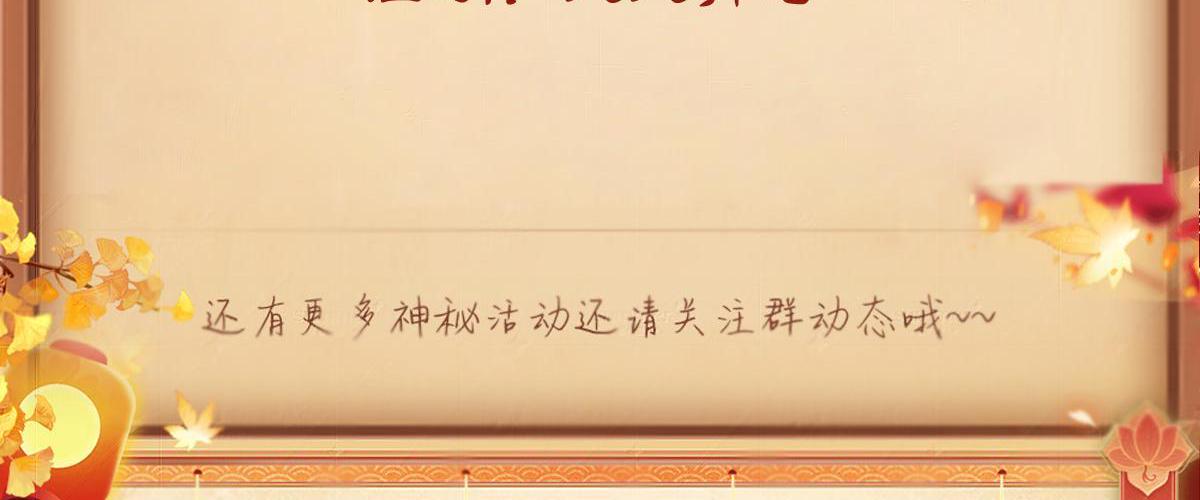 还有更多神秘活动还请关注群动态哦~~